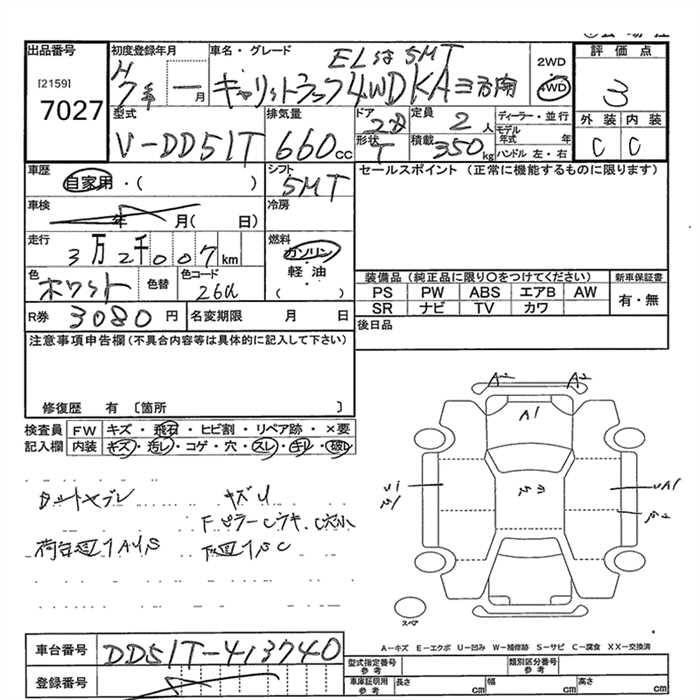 出品番号
[2159]
7027
初度登録年月
H7年 一月
車名・グレード
EL 5MT
キャリィトラック4WD KA 三方開
2WD
4WD
評価点
3
外装 内装
C C
型式
V-DD51T
排気量
660cc
ドア
2D
形状
T
定員
2人
積載
350kg
ディーラー・並行
モデル年式 年
ハンドル 左・右
車歴
自家用・( )
シフト
5MT
セールスポイント (正常に機能するものに限ります)
車検
年 月( 日)
冷房
走行
3万2千007km
燃料
ガソリン
軽・油
( )
色
ホワイト
色替
色コード
26U
装備品 (純正品に限り○をつけてください)
新車保証書
PS PW ABS エアB AW
SR ナビ TV カワ
有・無
R券 3080円
名変期限 月 日
後日品
注意事項申告欄(不具合内容等は具体的に記入して下さい)
修復歴 有 〔箇所 〕
検査員記入欄
FW キズ・飛石・ヒビ割・リペア跡・×要
内装 キズ・汚レ・コゲ・穴・スレ・キレ・破レ
キズU
Fピラー
荷台廻り
下廻りSC
A2 A2
A1
U1
UA1
スペア
A-キズ E-エクボ U-凹み W-補修跡 S-サビ C-腐食 XX-交換済
車台番号
DD51T-413740
登録番号
型式指定番号参考
類別区分番号参考
車庫証明用参考
長さ cm
幅 cm
高さ cm